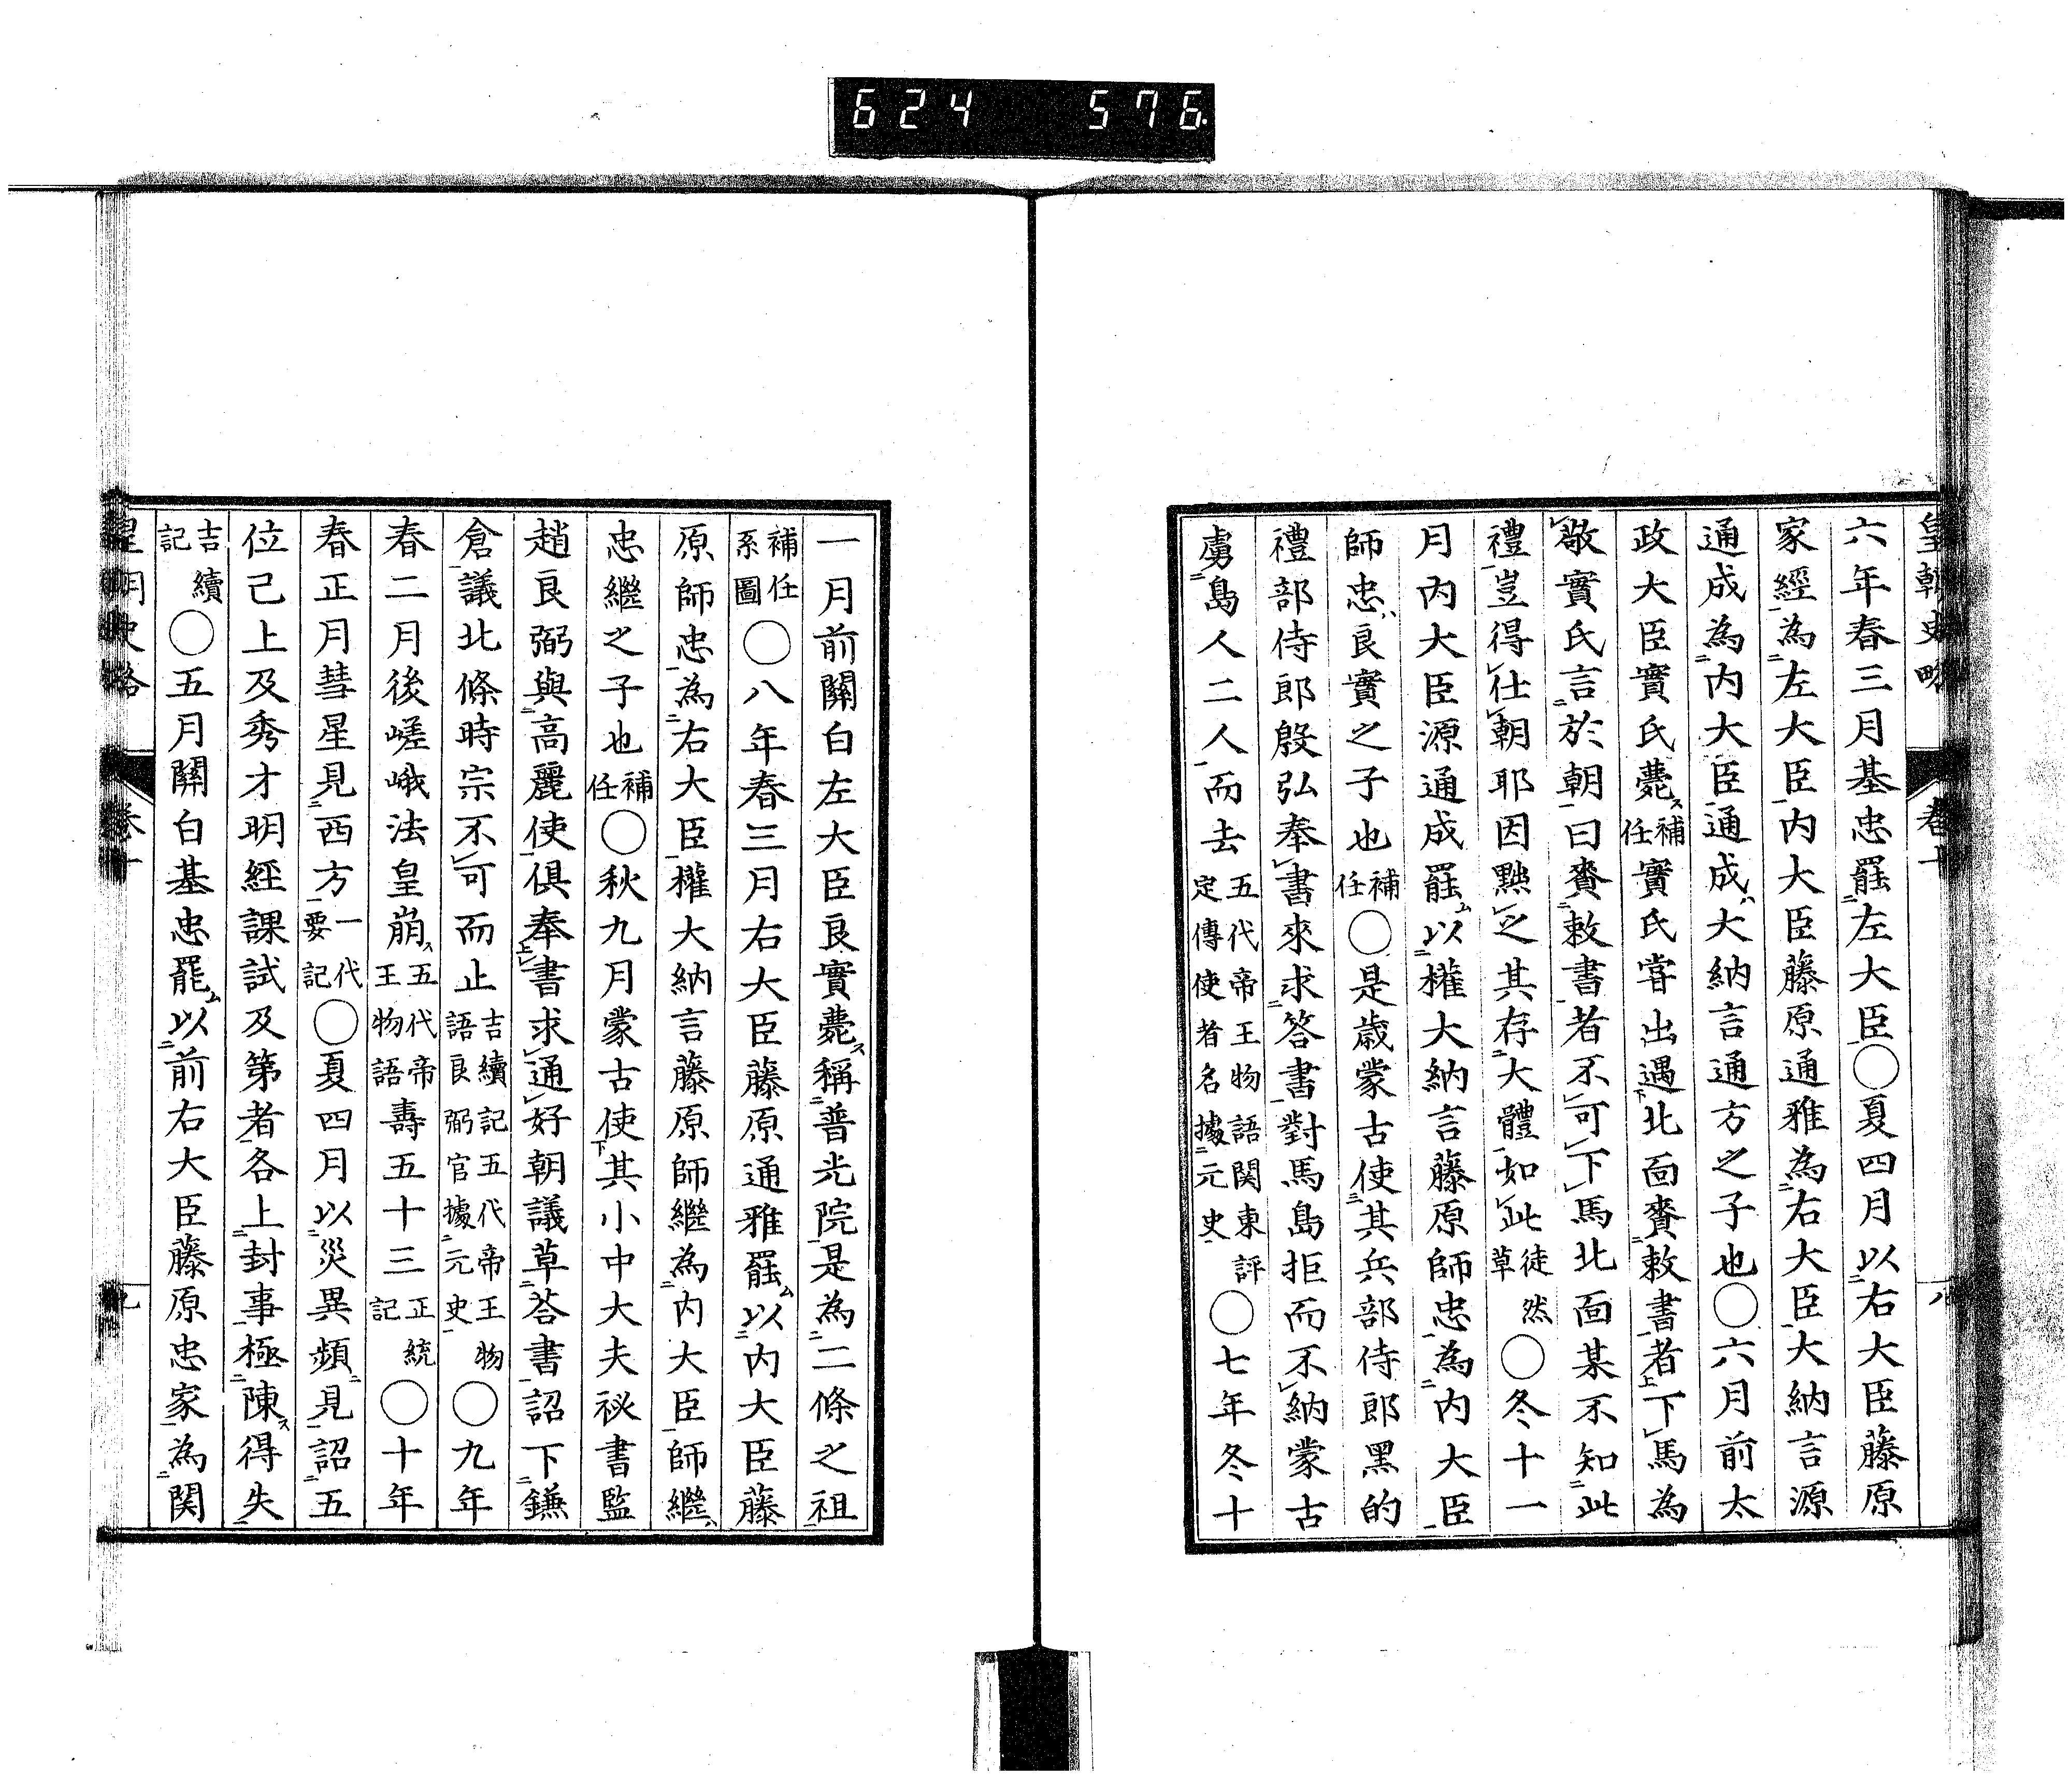 624 576
皇朝史略 卷十 八
六年春三月基忠罷左大臣〇夏四月以右大臣藤原
家經為左大臣内大臣藤原通雅為右大臣大納言源
通成為内大臣通成大納言通方之子也〇六月前太
政大臣實氏薨補任實氏嘗出遇北面賷敕書者下馬為
敬實氏言於朝曰賷敕書者不可下馬北面某不知此
禮豈得仕朝耶因黜之其存大體如此徒然草〇冬十一
月内大臣源通成罷以權大納言藤原師忠為内大臣
師忠良實之子也補任〇是歳蒙古使其兵部侍郎黑的
禮部侍郎殷弘奉書來求答書對馬島拒而不納蒙古
虜島人二人而去五代帝王物語関東評定傳使者名據元史〇七年冬十
一月前關白左大臣良實薨稱普光院是為二條之祖
補任系圖〇八年春三月右大臣藤原通雅罷以内大臣藤
原師忠為右大臣權大納言藤原師繼為内大臣師繼
忠繼之子也補任〇秋九月蒙古使其小中大夫祕書監
趙良弼與高麗使俱奉書求通好朝議草荅書詔下鎌
倉議北條時宗不可而止吉續記五代帝王物語良弼官據元史〇九年
春二月後嵯峨法皇崩五代帝王物語壽五十三正統記〇十年
春正月彗星見西方一代要記〇夏四月以災異頻見詔五
位己上及秀才明經課試及第者各上封事極陳得失
吉續記〇五月關白基忠罷以前右大臣藤原忠家為関
皇朝史略 卷十 九